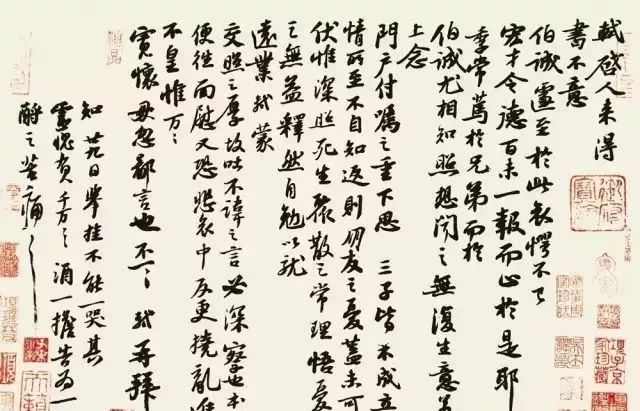 軾啓人来得
書不意
伯誠遽至於此哀愕不已
宏才令德百未一報而止於是耶
季常篤於兄弟而於
伯誠尤相知照想聞之無復生意
上念
門户付囑之重下思 三子皆未成立
情所至不自知返則朋友之憂蓋未可
伏惟深照死生聚散之常理悟憂
之無益釋然自勉以就
遠業軾蒙
交照之厚故吐不諱之言必深察也本
便往面慰又恐悲哀中反更撓亂進
不皇惟万〻
寛懷毋忽鄙言也不一〻軾再拜
知廿九日舉挂不能一哭其
靈愧負千万〻〻酒一擔告為一
酹之苦痛〻〻